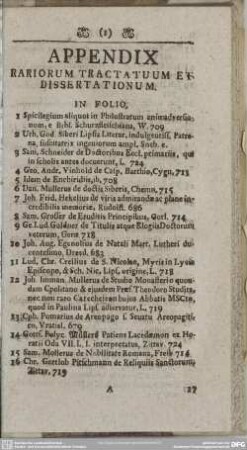 (1)
APPENDIX
RARIORUM TRACTATUUM ET
DISSERTATIONUM.
IN FOLIO,
1 Spicilegium aliquot in Philostratum animadversio-
num, e Bibl. Schurzfleischiana, W. 709
2 Urb. God. Siberi Lipsia Literar. indulgentiss. Patro-
na, suscitatrix ingeniorum ampl. Snob. e.
3 Sam. Schneider de Doctoribus Eccl. primariis, qui
in scholis antea docuerunt, L. 724
4 Geo. Andr. Vinhold de Casp. Barthio, Cygn. 713
5 Idem de Enchiridiis, ib. 708
6 Dan. Mullerus de doctis Siberis, Chemn. 715
7 Joh. Frid. Hekelius de viris admirandæ ac plane in-
credibilis memoriæ, Rudolst. 686
8 Sam. Grosser de Eruditis Principibus, Gorl. 714
9 Ge. Lud. Goldner de Titulis atque Elogiis Doctorum
veterum, Gera 718
10 Joh. Aug. Egenolfus de Natali Mart. Lutheri du-
centesimo, Dresd. 683
11 Lud. Chr. Crellius de S. Nicolao, Myris in Lycia
Episcopo, & Sch. Nic. Lips. origine, L. 718
12 Joh. Imman. Mullerus de Studio Monasterio quon-
dam Cpolitano & ejusdem Præf. Theodoro Studita,
nec non raro Catecheseon hujus Abbatis MSCto,
quod in Paulina Lips. asservatur, L. 719
13 Cph. Pomarius de Areopago s. Senatu Areopagiti-
co, Vratisl. 679
14 Gottf. Polyc. Mülleri Patiens Lacedæmon ex Ho-
ratii Oda VII. L. I. interpretatus, Zittav. 724
15 Sam. Mollerus de Nobilitate Romana, Freib. 714
16 Chr. Gottlob Pitschmann de Reliquiis Sanctorum
Zittav. 719
A 17